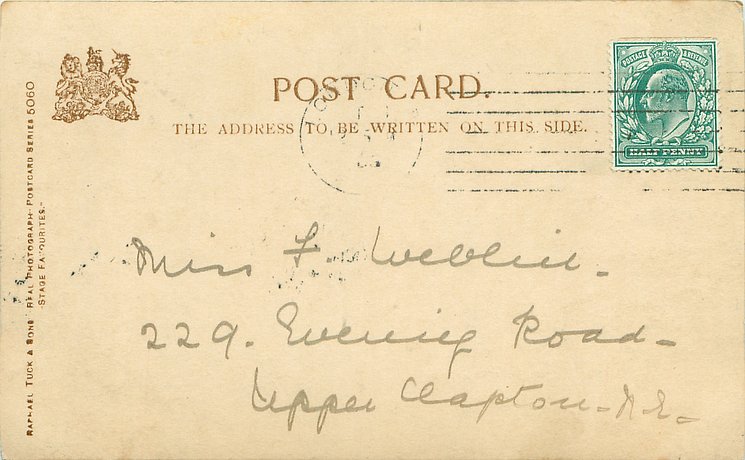 POSTAGE REVENUE
POST CARD.
HALF PENNY
THE ADDRESS TO BE WRITTEN ON THIS SIDE.
RAPHAEL TUCK & SONS' "REAL PHOTOGRAPH" POSTCARD SERIES 5060
"STAGE FAVOURITES."
Miss F. Weblin.
229. Evering Road
Upper Clapton. N.E.